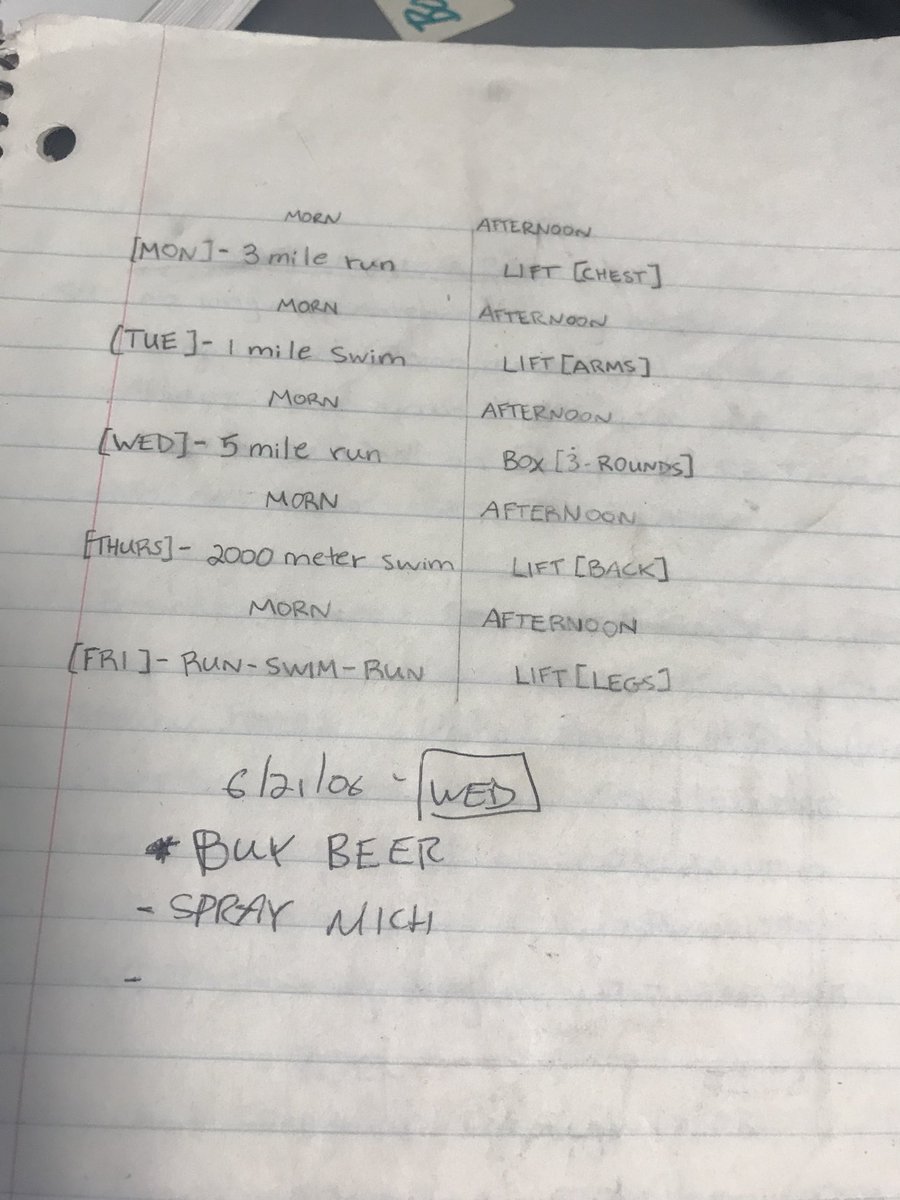 MORN AFTERNOON
[MON]- 3 mile run LIFT [CHEST]
MORN AFTERNOON
[TUE]- 1 mile swim LIFT [ARMS]
MORN AFTERNOON
[WED]- 5 mile run BOX [3-ROUNDS]
MORN AFTERNOON
[THURS]- 2000 meter swim LIFT [BACK]
MORN AFTERNOON
[FRI]- RUN-SWIM-RUN LIFT [LEGS]
6/21/06 - WED
* BUY BEER
- SPRAY MICH
-